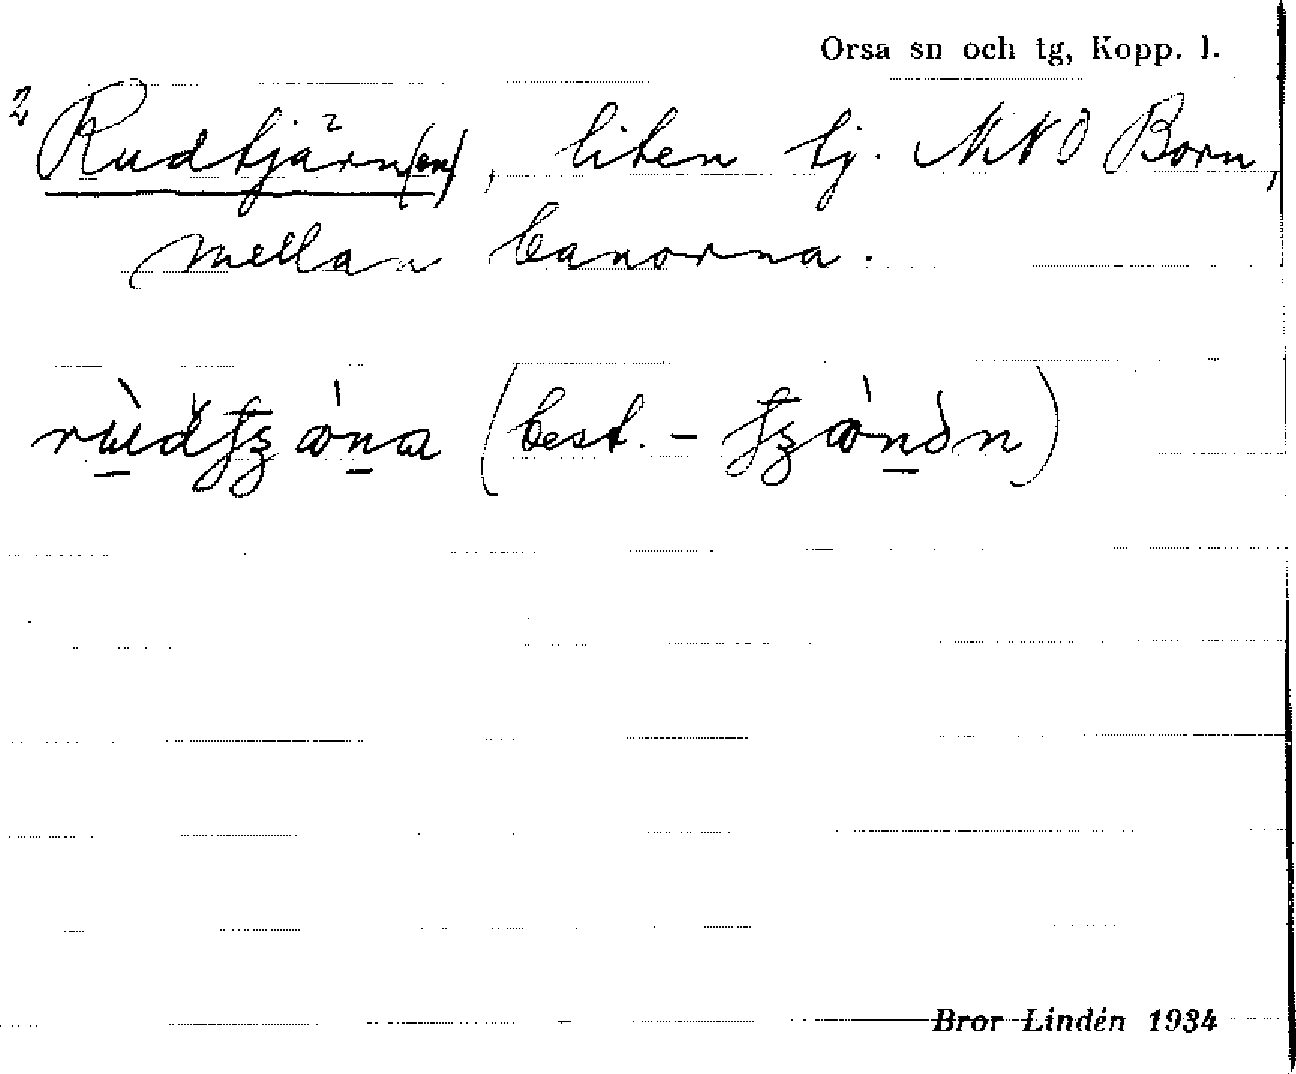 Orsa sn och tg, Kopp. l.
2 Rudtjärn(en), liten tj. NNO Born,
mellan banorna.
(best. -
Bror Lindén 1934